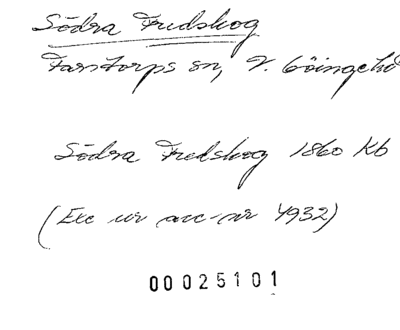 Södra Fredskog
Farstorps sn, V. Göingehd
Södra Fredskog 1860 Kb
(Exc ur acc-nr 4932)
00025101